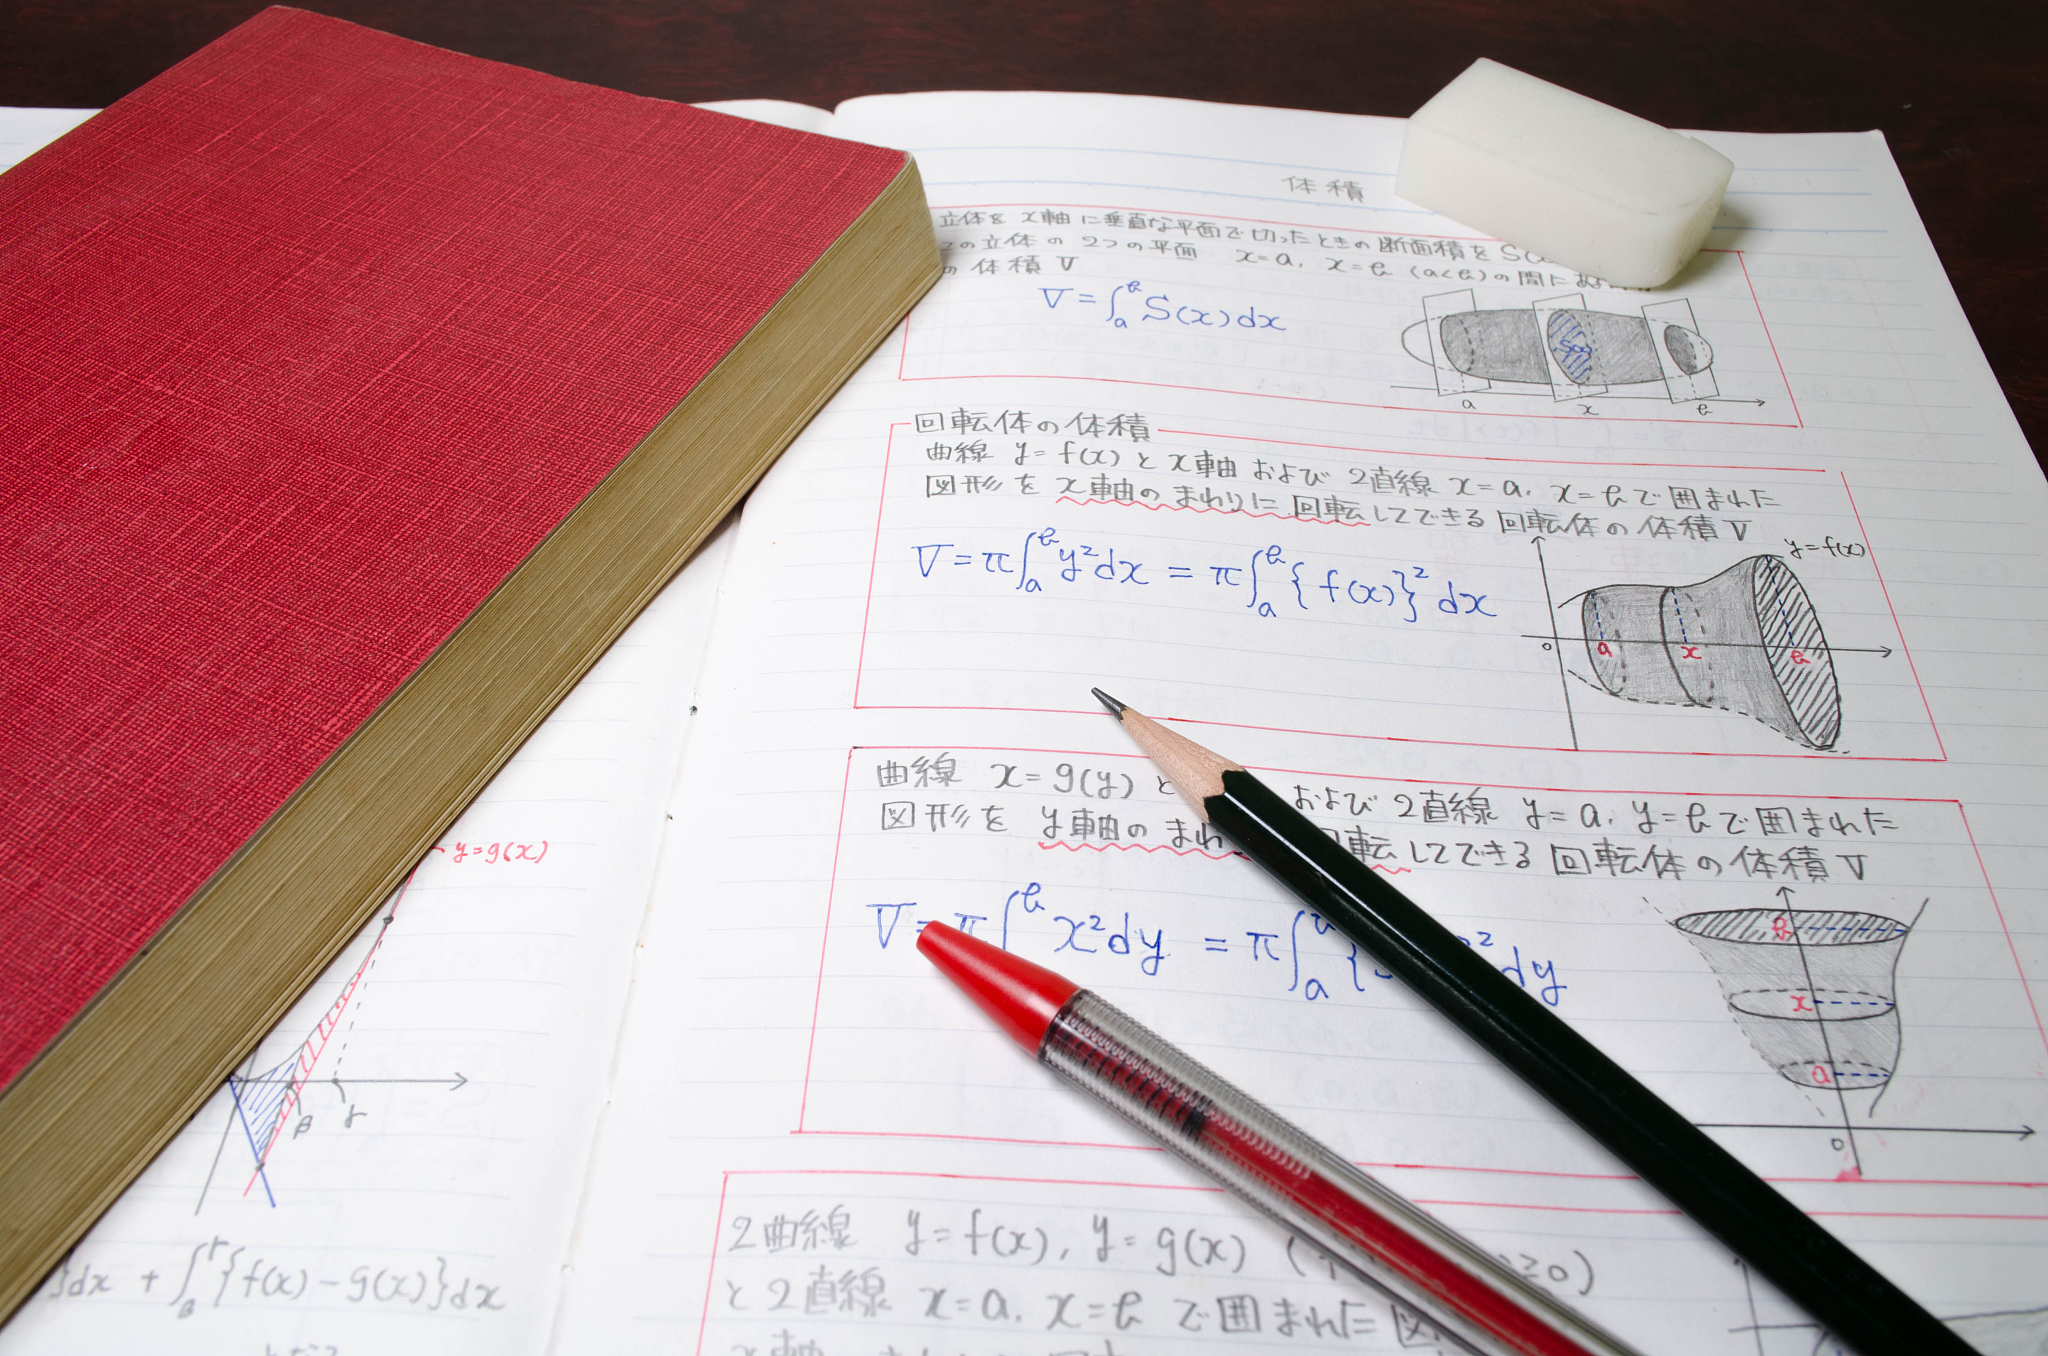 y=g(x)
β γ
}dx + ∫β^γ{f(x)-g(x)}dx
体積
立体を x軸に垂直な平面で切ったときの断面積を S(
の立体の 2つの平面 x=a, x=b (a<b)の間に
の体積 V
V=∫a^b S(x)dx
S(x)
a x b
回転体の体積
曲線 y=f(x) と x軸 および 2直線 x=a, x=b で囲まれた
図形を x軸のまわりに回転してできる 回転体の体積 V
V=π∫a^b y²dx = π∫a^b{f(x)}²dx
y=f(x)
0 a x b
曲線 x=g(y) と および 2直線 y=a, y=b で囲まれた
図形を y軸のまわ 回転してできる 回転体の体積 V
V=π∫^b x²dy = π∫a { ²dy
b
x
a
0
2曲線 y=f(x), y=g(x) ( ≧0)
と 2直線 x=a, x=b で囲まれた図
x軸